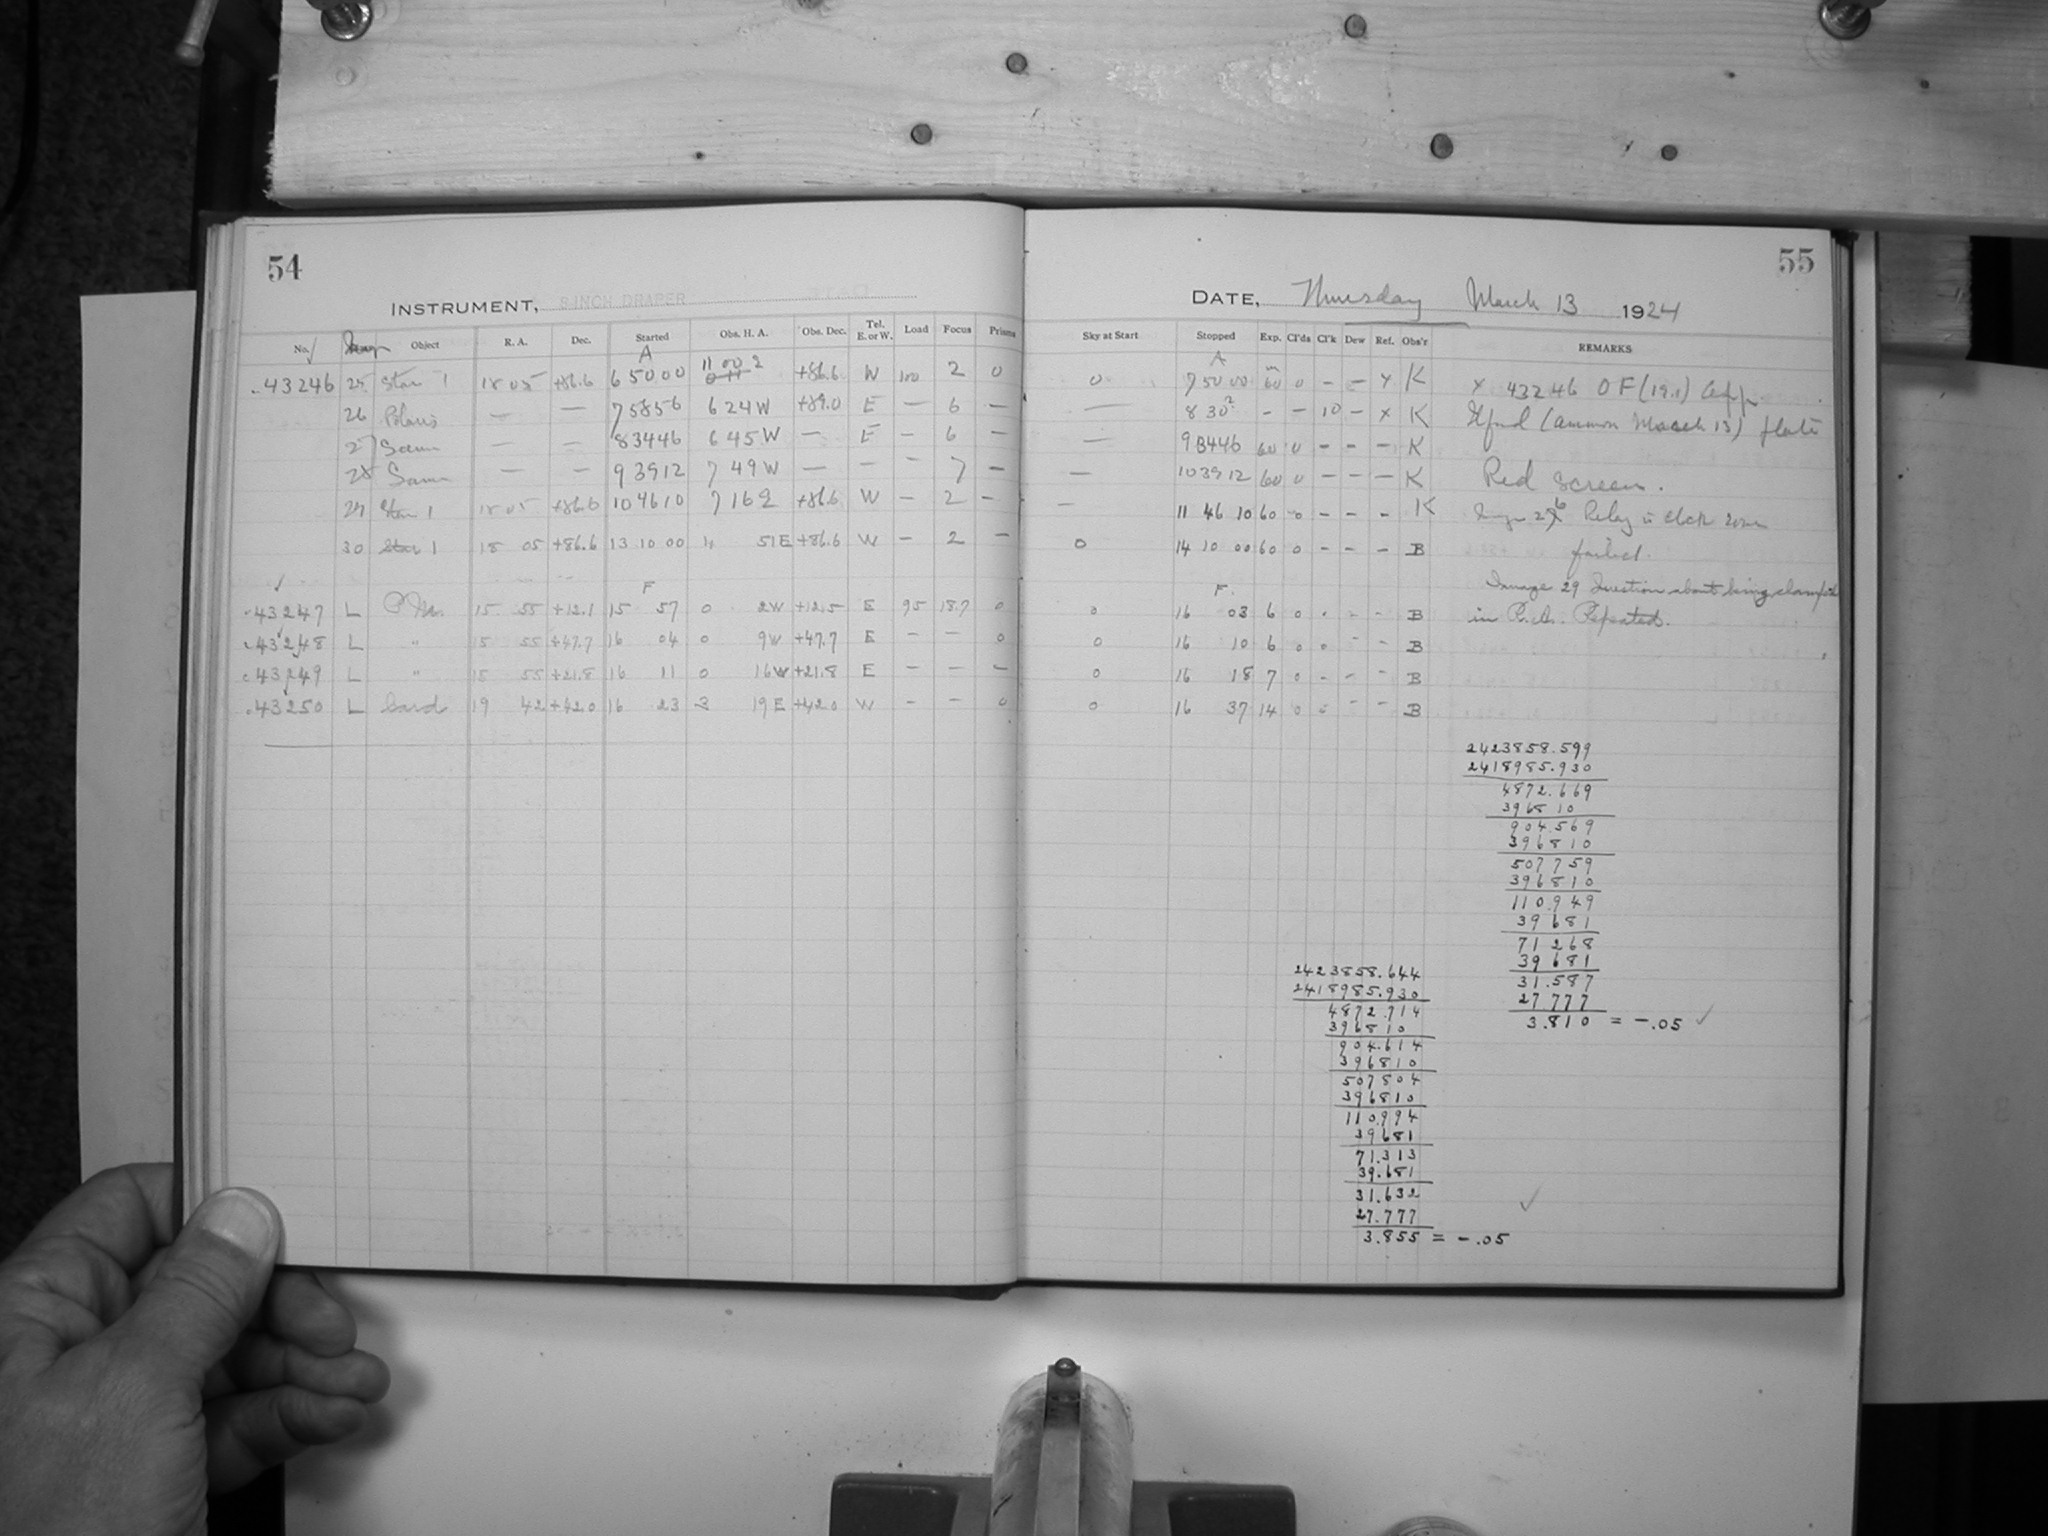 54
INSTRUMENT, 8-INCH DRAPER
No. Object R. A. Dec. Started Obs. H. A. Obs. Dec. Tel. E. or W. Load Focus Prisms
A
43246 25 Star 1 18 05 +86.6 6 50 00 11 00 2 +86.6 W 100 2 0
26 Polaris — — 7 58 56 6 24 W +89.0 E — 6 —
27 Same — — 8 34 46 6 45 W — E — 6 —
28 Same — — 9 39 12 7 49 W — — 7 —
29 Star 1 18 05 +86.6 10 46 10 7 16 E +86.6 W — 2 —
30 Star 1 18 05 +86.6 13 10 00 4 51 E +86.6 W — 2 —
F
43247 L P.M. 15 55 +12.1 15 57 0 2 W +12.5 E 95 18.7 0
43248 L " 15 55 +47.7 16 04 0 9 W +47.7 E — — 0
43249 L " 15 55 +21.8 16 11 0 16 W +21.8 E — — —
43250 L Card 19 42 +42.0 16 23 3 19 E +42.0 W — — 0
55
DATE, Thursday March 13 1924
Sky at Start Stopped Exp. Cl'ds Cl'k Dew Ref. Obs'r REMARKS
A
0 7 50 00 60 0 — — x K x 43246 OF (19.1) App.
— 8 30 2 — — 10 — x K (Ammon March 13) plate
— 9 34 46 60 0 — — — K
— 10 39 12 60 0 — — — K Red Screen.
— 11 46 10 60 0 — — — K Relay in clock
0 14 10 00 60 0 — — — B failed.
F. Image 29 Question about being clamped
0 16 03 6 0 - - - B in R.A. Repeated.
0 16 10 6 0 0 - - B
0 16 18 7 0 - - - B
0 16 37 14 0 - - - B
2423858.599
2418985.930
4872.669
396810
904.569
396810
507759
396810
110.949
39681
71268
39681
31.587
27777
3.810 = -.05 ✓
2423858.644
2418985.930
4872.714
396810
904.614
396810
507804
396810
110.994
39681
71.313
39.681
31.632
27.777
3.855 = -.05 ✓